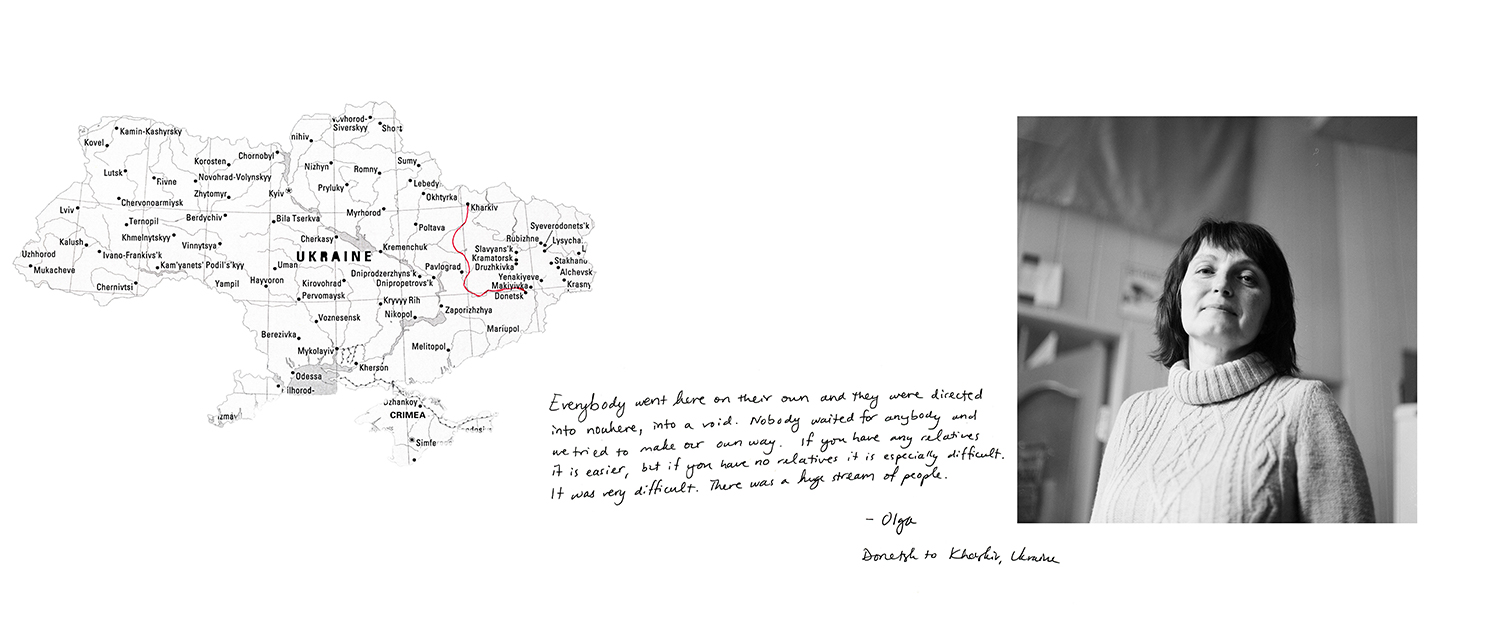 Kamin-Kashyrsky
Kovel
Lutsk
Rivne
Korosten
Chornobyl
Novohrad-Volynskyy
Zhytomyr
Kyiv
nihiv
Siverskyy
Nizhyn
Romny
Sumy
Pryluky
Lebedy
Okhtyrka
Kharkiv
Chervonoarmiysk
Lviv
Ternopil
Berdychiv
Bila Tserkva
Myrhorod
Poltava
Syeverodonets'k
Khmelnytskyy
Vinnytsya
Cherkasy
Kremenchuk
Rubizhne
Lysycha
Kalush
Ivano-Frankivs'k
UKRAINE
Slavyans'k
Kramatorsk
Druzhkivka
Stakhano
Uzhhorod
Mukacheve
Kam'yanets' Podil's'kyy
Uman
Dniprodzerzhyns'k
Pavlograd
Alchevsk
Chernivtsi
Yampil
Hayvoron
Kirovohrad
Dnipropetrovs'k
Yenakiyeve
Makiyivka
Krasny
Donetsk
Pervomaysk
Kryvyy Rih
Nikopol
Zaporizhzhya
Voznesensk
Mariupol
Berezivka
Mykolayiv
Melitopol
Kherson
Odessa
ilhorod-
Izmay
Dzhankoy
CRIMEA
Simfe
Everybody went here on their own and they were directed
into nowhere, into a void. Nobody waited for anybody and
we tried to make our own way. If you have any relatives
it is easier, but if you have no relatives it is especially difficult.
It was very difficult. There was a huge stream of people.
- Olga
Donetsk to Kharkiv, Ukraine